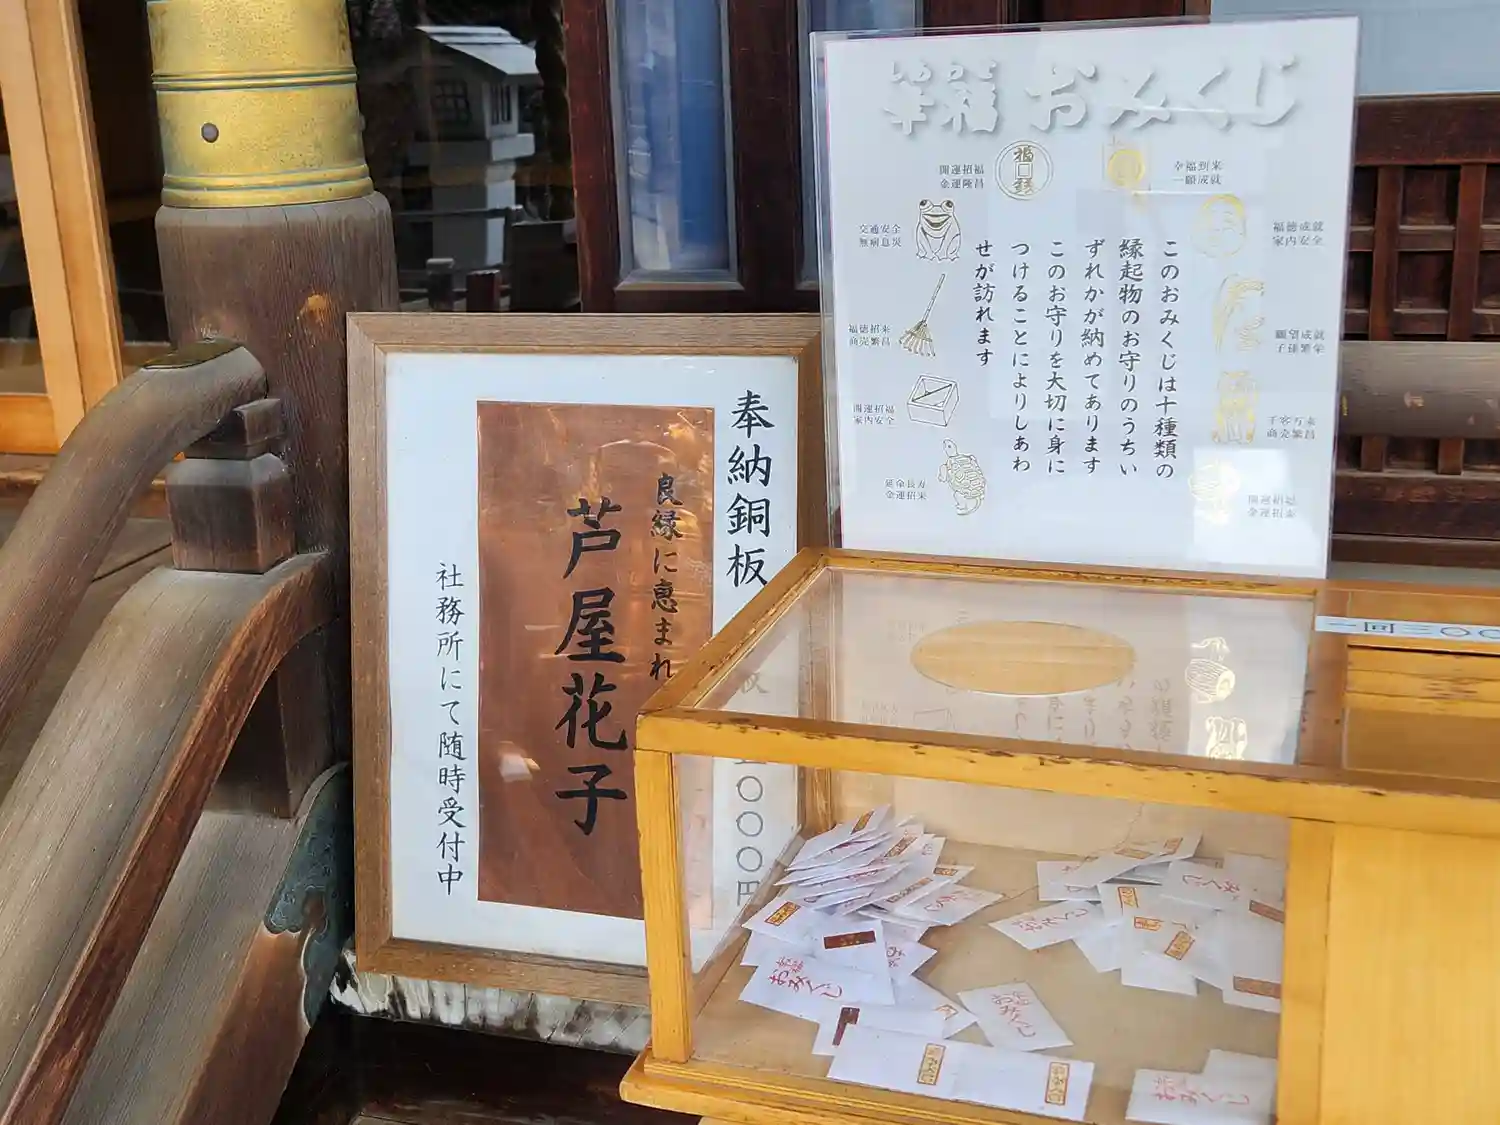 おみくじ
開運招福
金運隆昌
福
銭
幸福到来
一願成就
交通安全
無病息災
福徳成就
家内安全
福徳招来
商売繁昌
願望成就
子孫繁栄
開運招福
家内安全
千客万来
商売繁昌
延命長寿
金運招来
開運招福
金運招来
このおみくじは十種類の
縁起物のお守りのうちい
ずれかが納めてあります
このお守りを大切に身に
つけることによりしあわ
せが訪れます
奉納銅板
〇〇〇円
良縁に恵まれ
芦屋花子
社務所にて随時受付中
一回三〇〇
おみくじ
おみくじ
おみくじ